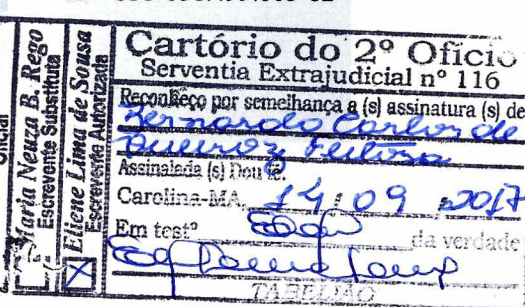 Oficial
Maria Neuza B. Rego
Escrevente Substituta
Eliene Lima de Sousa
Escrevente Autorizada
X
Cartório do 2º Ofício
Serventia Extrajudicial nº 116
Reconheço por semelhança a (s) assinatura (s) de
Bernardo Carlos de
Queiroz Feitosa
Assinalada (s) Dou fé.
Carolina-MA, 14 / 09 / 2017
Em testº da verdade
TABELIÃO